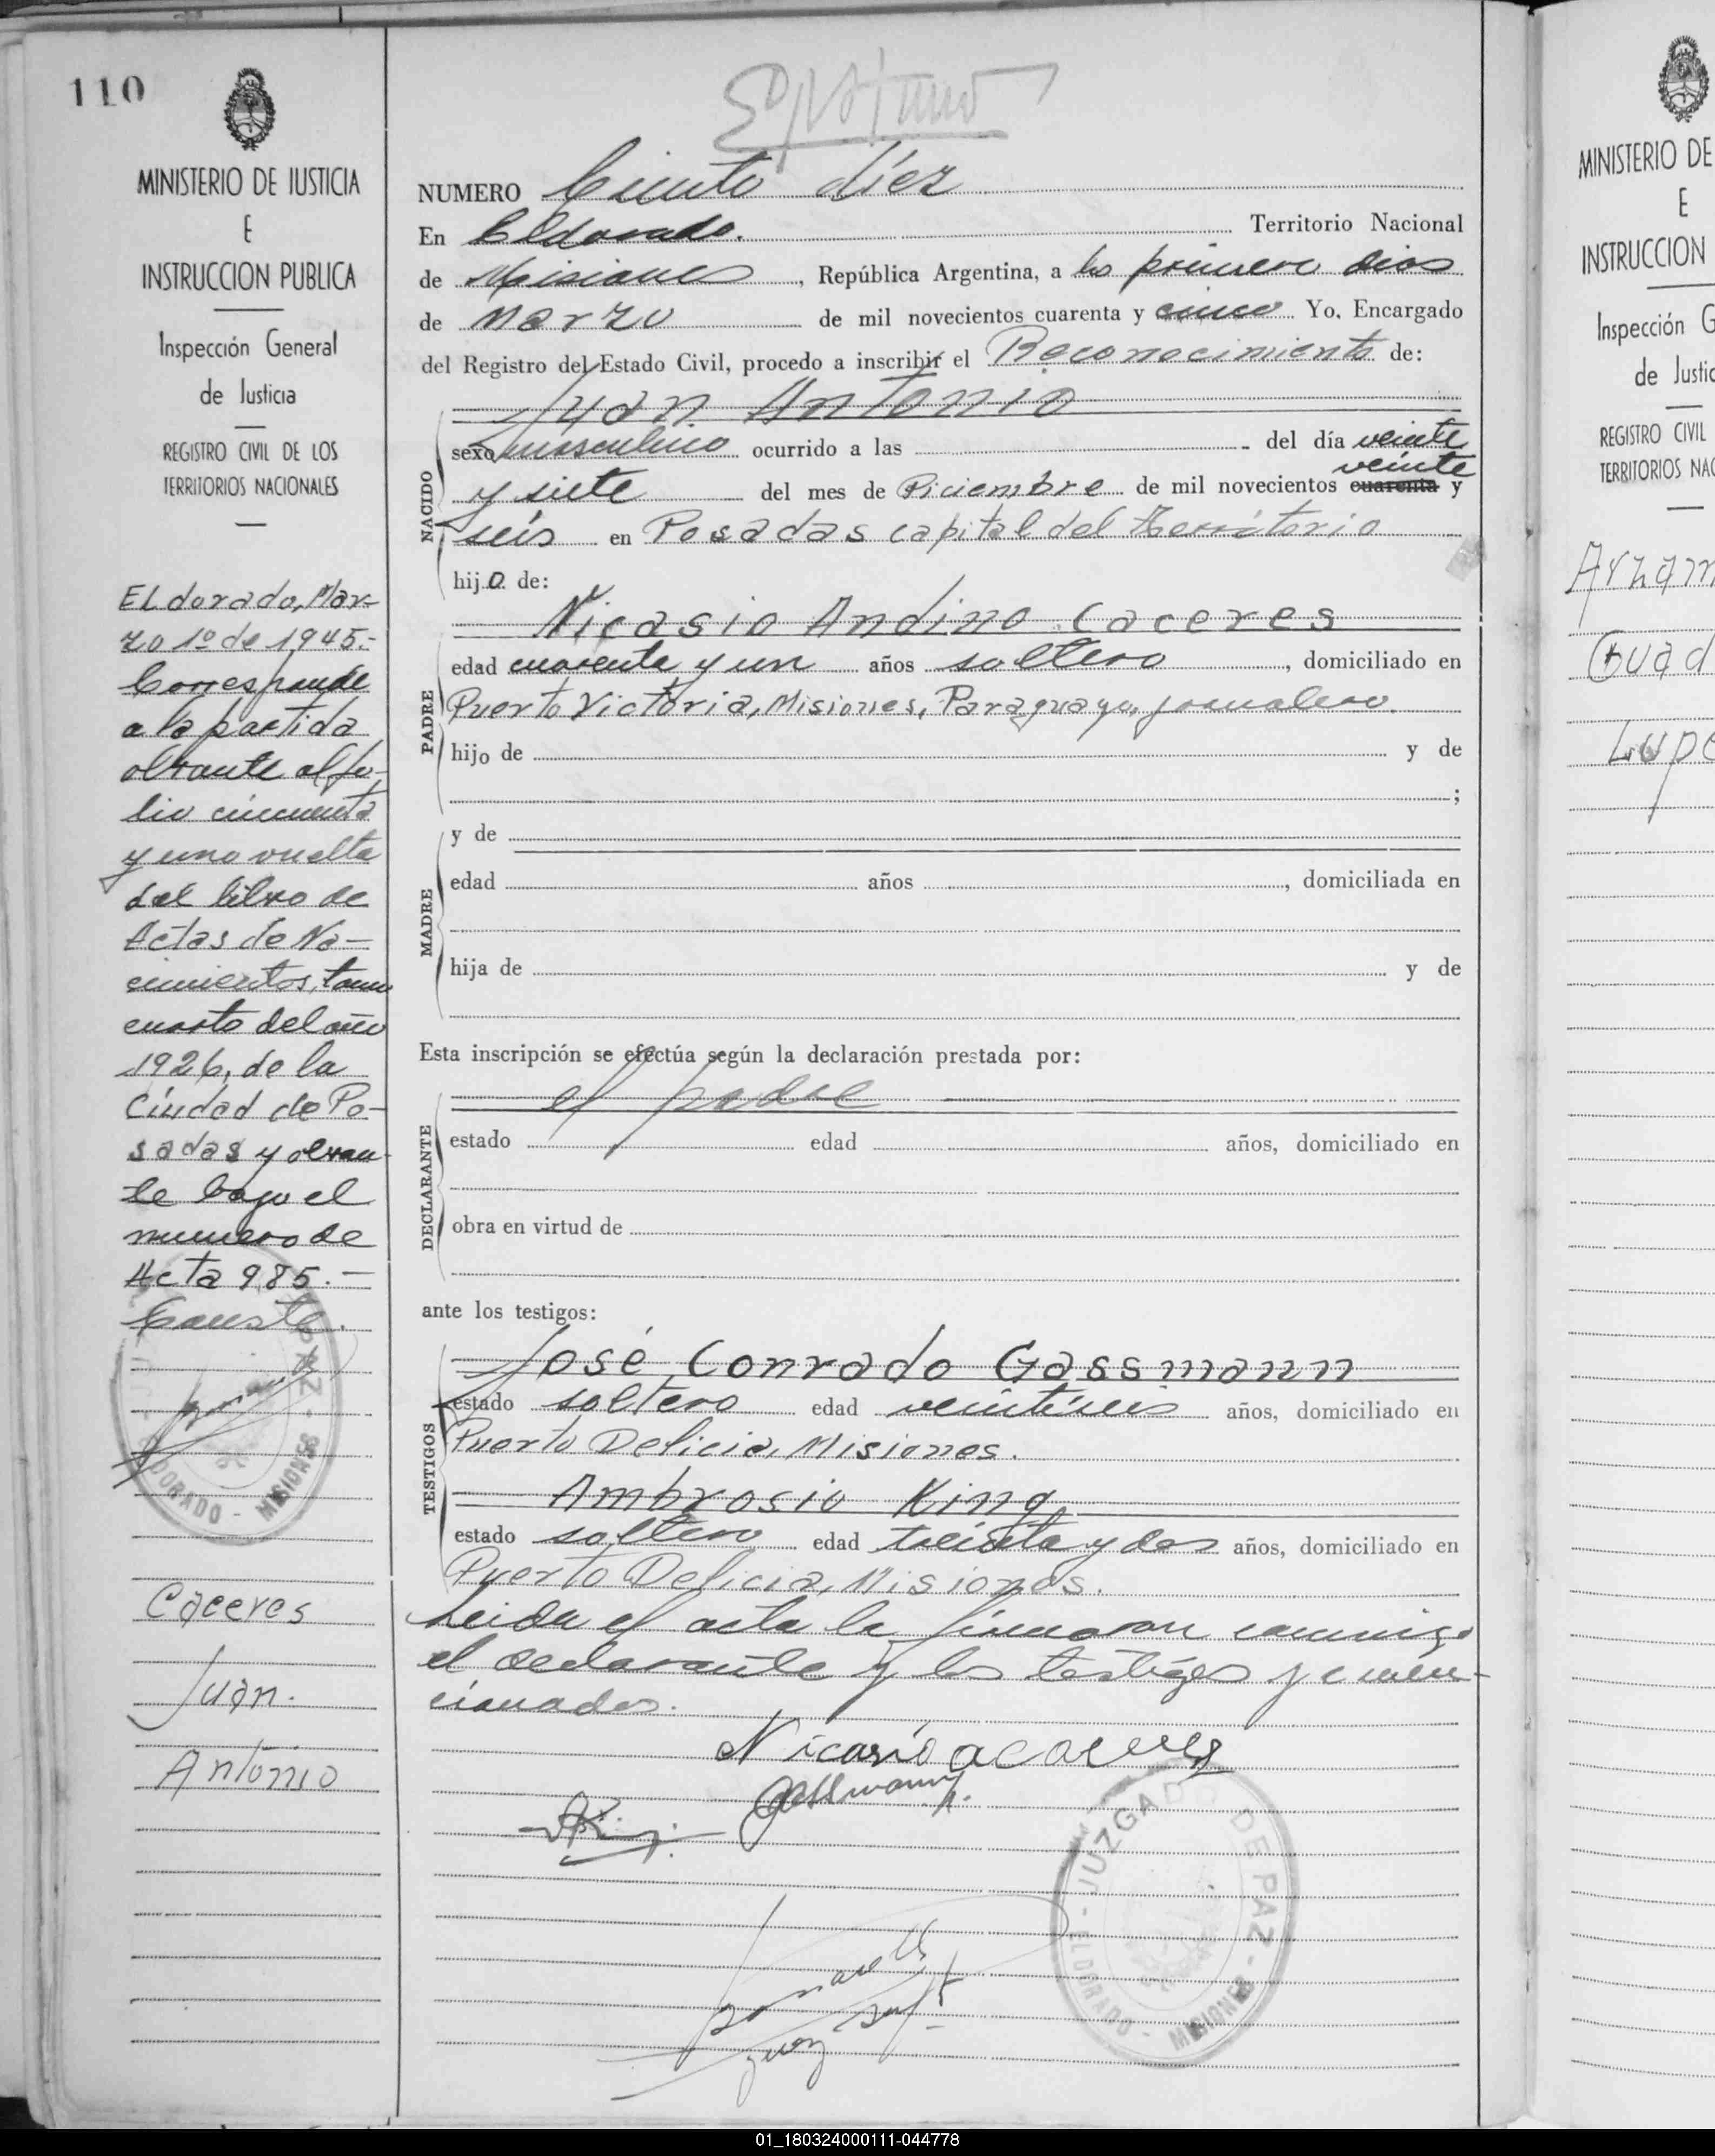 110
MINISTERIO DE JUSTICIA
E
INSTRUCCION PUBLICA
Inspección General
de Justicia
REGISTRO CIVIL DE LOS
TERRITORIOS NACIONALES
ELdorado, Mar-
zo 1º de 1945.-
Corresponde
a la partida
obrante al fo-
lio cincuenta
y uno vuelta
del libro de
Actas de Na-
cimientos, tomo
cuarto del año
1926, de la
Ciudad de Po-
sadas y obran-
te bajo el
numero de
Acta 985.-
Conste.
Caceres
Juan.
Antonio
NUMERO Ciento diez
En Eldorado. Territorio Nacional
de Misiones, República Argentina, a los primero dias
de Marzo de mil novecientos cuarenta y cinco Yo, Encargado
del Registro del Estado Civil, procedo a inscribir el Reconocimiento de:
Juan Antonio
NACIDO
sexo masculino ocurrido a las del día veinte
y siete del mes de Diciembre de mil novecientos cuarenta veinte y
seis en Posadas capital del Territorio
hijo de:
Nicasio Andino Caceres
PADRE
edad cuarenta y un años soltero, domiciliado en
Puerto Victoria, Misiones, Paraguayo, jornalero.
hijo de y de
;
MADRE
y de
edad años , domiciliada en
hija de y de
Esta inscripción se efectúa según la declaración prestada por:
el padre
DECLARANTE
estado edad años, domiciliado en
obra en virtud de
ante los testigos:
TESTIGOS
José Conrado Gassmann
estado soltero edad veintiseis años, domiciliado en
Puerto Delicia, Misiones.
Ambrosio King
estado soltero edad treinta y dos años, domiciliado en
Puerto Delicia, Misiones.
Leida el acta la firmaron conmigo
el declarante y los testigos ya men-
cionados.
Nicasio a caceres
Gassmann
JUZGADO DE PAZ - ELDORADO - MISIONES
MINISTERIO DE
E
INSTRUCCION
Inspección G
de Justic
REGISTRO CIVIL
TERRITORIOS NAC
Arzam
Guad
Lupe
01_180324000111-044778